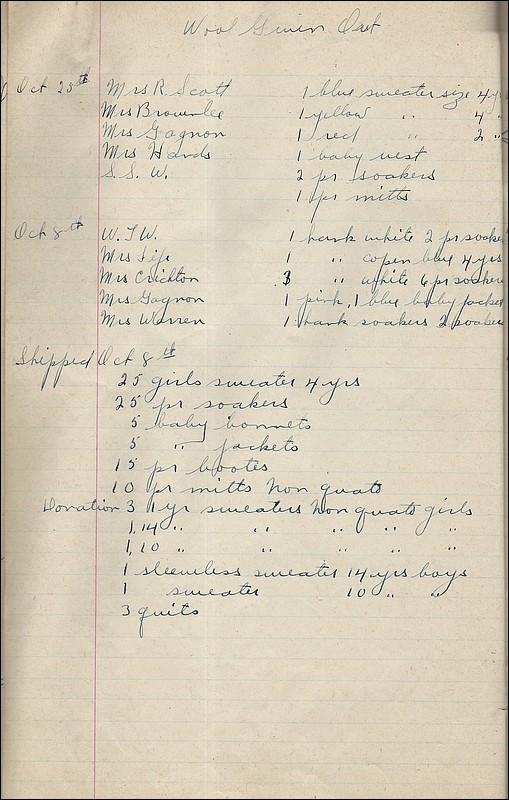 Wool Given Out
Oct 25th Mrs R. Scott 1 blue sweater size 4 yr
Mrs Brownlee 1 yellow " 4 "
Mrs Gagnon 1 red " 2 "
Mrs Hands 1 baby vest
S. S. W. 2 pr soakers
1 pr mitts
Oct 8th W. I W. 1 hank white 2 pr soake
Mrs 1 " copen blue 4 yrs
Mrs Crichton 3 " white 6 pr soakers
Mrs Gagnon 1 pink, 1 blue baby jacket
Mrs Warren 1 hank soakers 2 soakers
Shipped Oct 8th
25 girls sweater 4 yrs
25 pr soakers
5 baby bonnets
5 " jackets
15 pr bootes
10 pr mitts Non quato
Donation 3 1 yr sweaters Non quato girls
1, 14 " " " " "
1, 10 " " " " "
1 sleeveless sweater 14 yrs boys
1 sweater 10 " "
3 quits